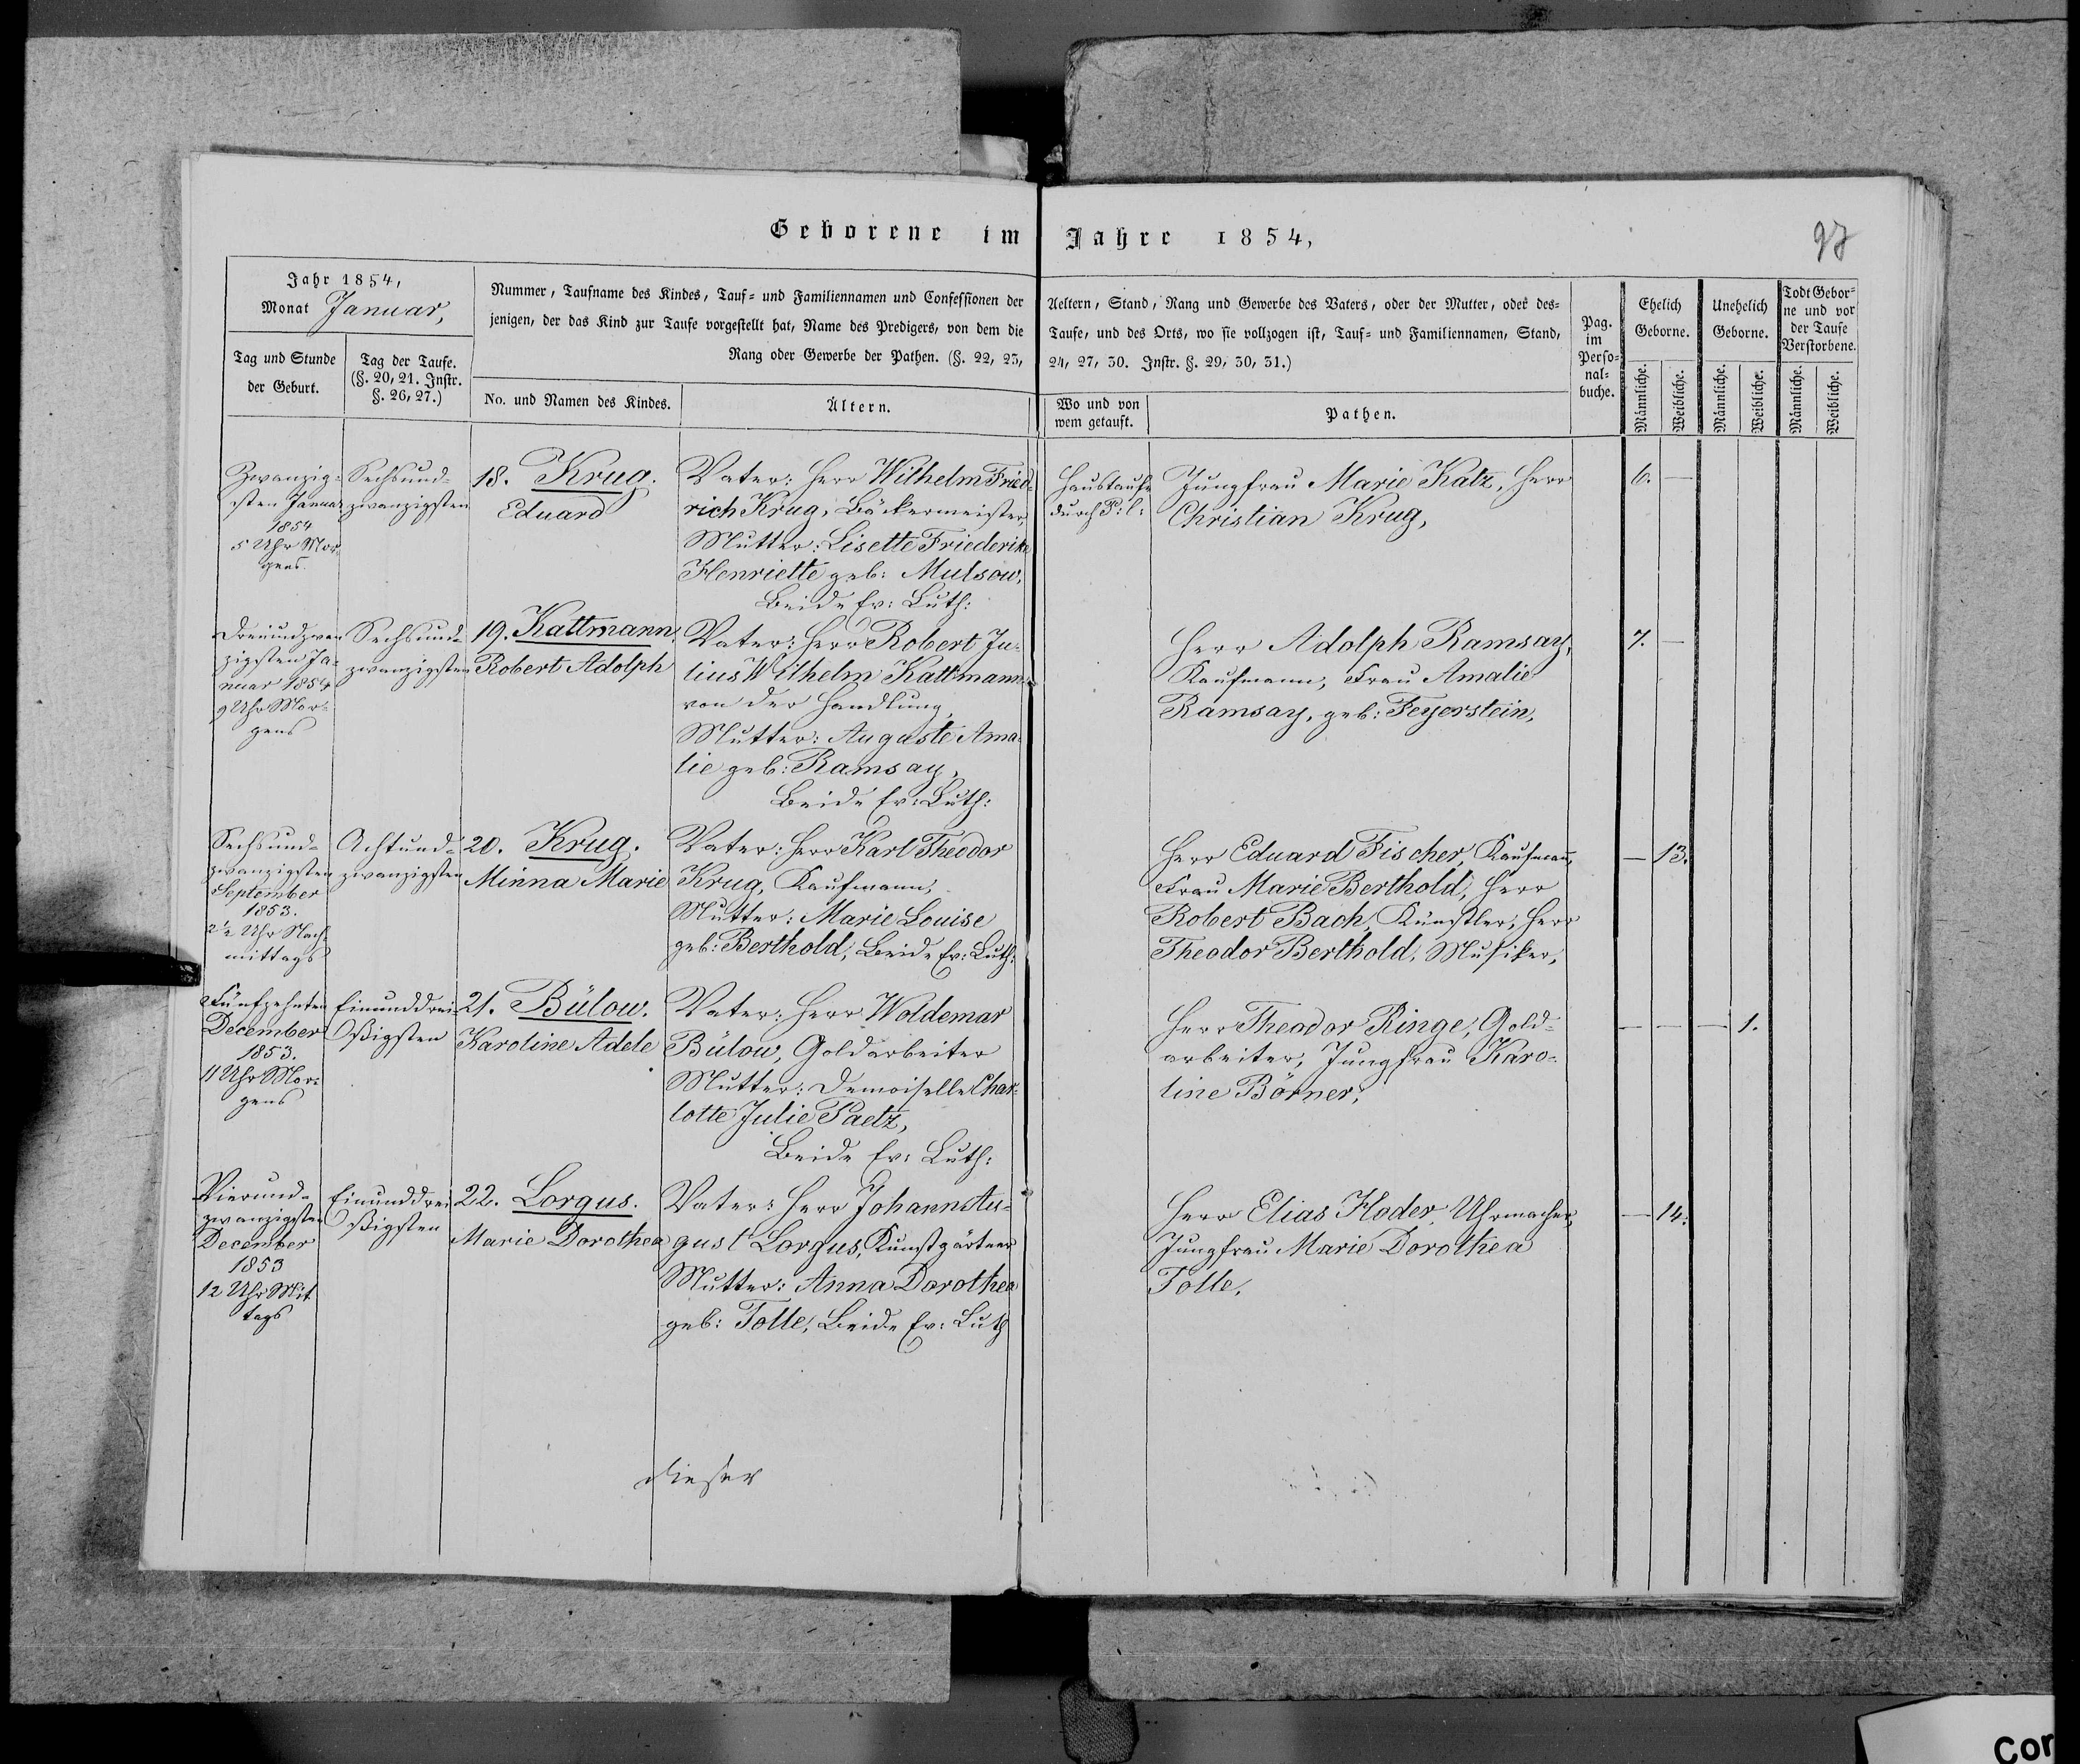 Geborene im Jahre 1854,
97
Jahr 1854,
Monat Januar,
Tag und Stunde
der Geburt.
Tag der Taufe.
(§. 20, 21. Instr.
§. 26, 27.)
Nummer, Taufname des Kindes, Tauf- und Familiennamen und Confessionen der Aeltern, Stand, Rang und Gewerbe des Vaters, oder der Mutter, oder des-
jenigen, der das Kind zur Taufe vorgestellt hat, Name des Predigers, von dem die Taufe, und des Orts, wo sie vollzogen ist, Tauf- und Familiennamen, Stand,
Rang oder Gewerbe der Pathen. (§. 22, 23, 24, 27, 30. Instr. §. 29, 30, 31.)
No. und Namen des Kindes.
Ältern.
Wo und von
wem getauft.
Pathen.
Pag.
im
Perso-
nal-
buche.
Ehelich
Geborne.
Unehelich
Geborne.
Todt Gebor-
ne und vor
der Taufe
Verstorbene.
Männliche.
Weibliche.
Männliche.
Weibliche.
Männliche.
Weibliche.
Zwanzig-
sten Januar
1854
5 Uhr Mor
gens.
Sechsund-
zwanzigsten
18. Krug.
Eduard
Vater: Herr Wilhelm Fried-
rich Krug, Bäckermeister,
Mutter: Lisette Friederike
Henriette geb: Mulsow,
Beide Ev: Luth:
Haustaufe
durch P: l:
Jungfrau Marie Katz, Herr
Christian Krug,
6. —
Dreiundzwan
zigsten Ja-
nuar 1854
9 Uhr Mor-
gens
Sechsund-
zwanzigsten
19. Kattmann.
Robert Adolph
Vater: Herr Robert Ju-
lius Wilhelm Kattmann
von der Handlung,
Mutter: Auguste Ama-
lie geb: Ramsay,
Beide Ev: Luth:
Herr Adolph Ramsay,
Kaufmann, Frau Amalie
Ramsay, geb: Feyerstein,
7. —
Sechsund-
zwanzigsten
September
1853.
2½ Uhr Nach-
mittags
Achtund-
zwanzigsten
20. Krug.
Minna Marie
Vater: Herr Karl Theodor
Krug, Kaufmann,
Mutter: Marie Louise
geb: Berthold, Beide Ev: Luth:
Herr Eduard Fischer, Kaufmann,
Frau Marie Berthold, Herr
Robert Bach, Künstler, Herr
Theodor Berthold, Musiker,
— 13.
Fünfzehnten
December
1853.
11 Uhr Mor-
gens
Einunddrei
ßigsten
21. Bülow.
Karoline Adele
Vater: Herr Woldemar
Bülow, Goldarbeiter
Mutter: Demoiselle Char-
lotte Julie Paetz,
Beide Ev: Luth:
Herr Theodor Ringe, Gold-
arbeiter, Jungfrau Karo-
line Börner,
— — — 1.
Vierund-
zwanzigsten
December
1853
12 Uhr Mit
tags
Einunddrei
ßigsten
22. Lorgus.
Marie Dorothea
Vater: Herr Johann Au-
gust Lorgus, Kunstgärtner
Mutter: Anna Dorothea
geb: Tolle, Beide Ev: Luth
Herr Elias Hoder, Uhrmacher,
Jungfrau Marie Dorothea
Tolle,
— 14.
dieser
Cor